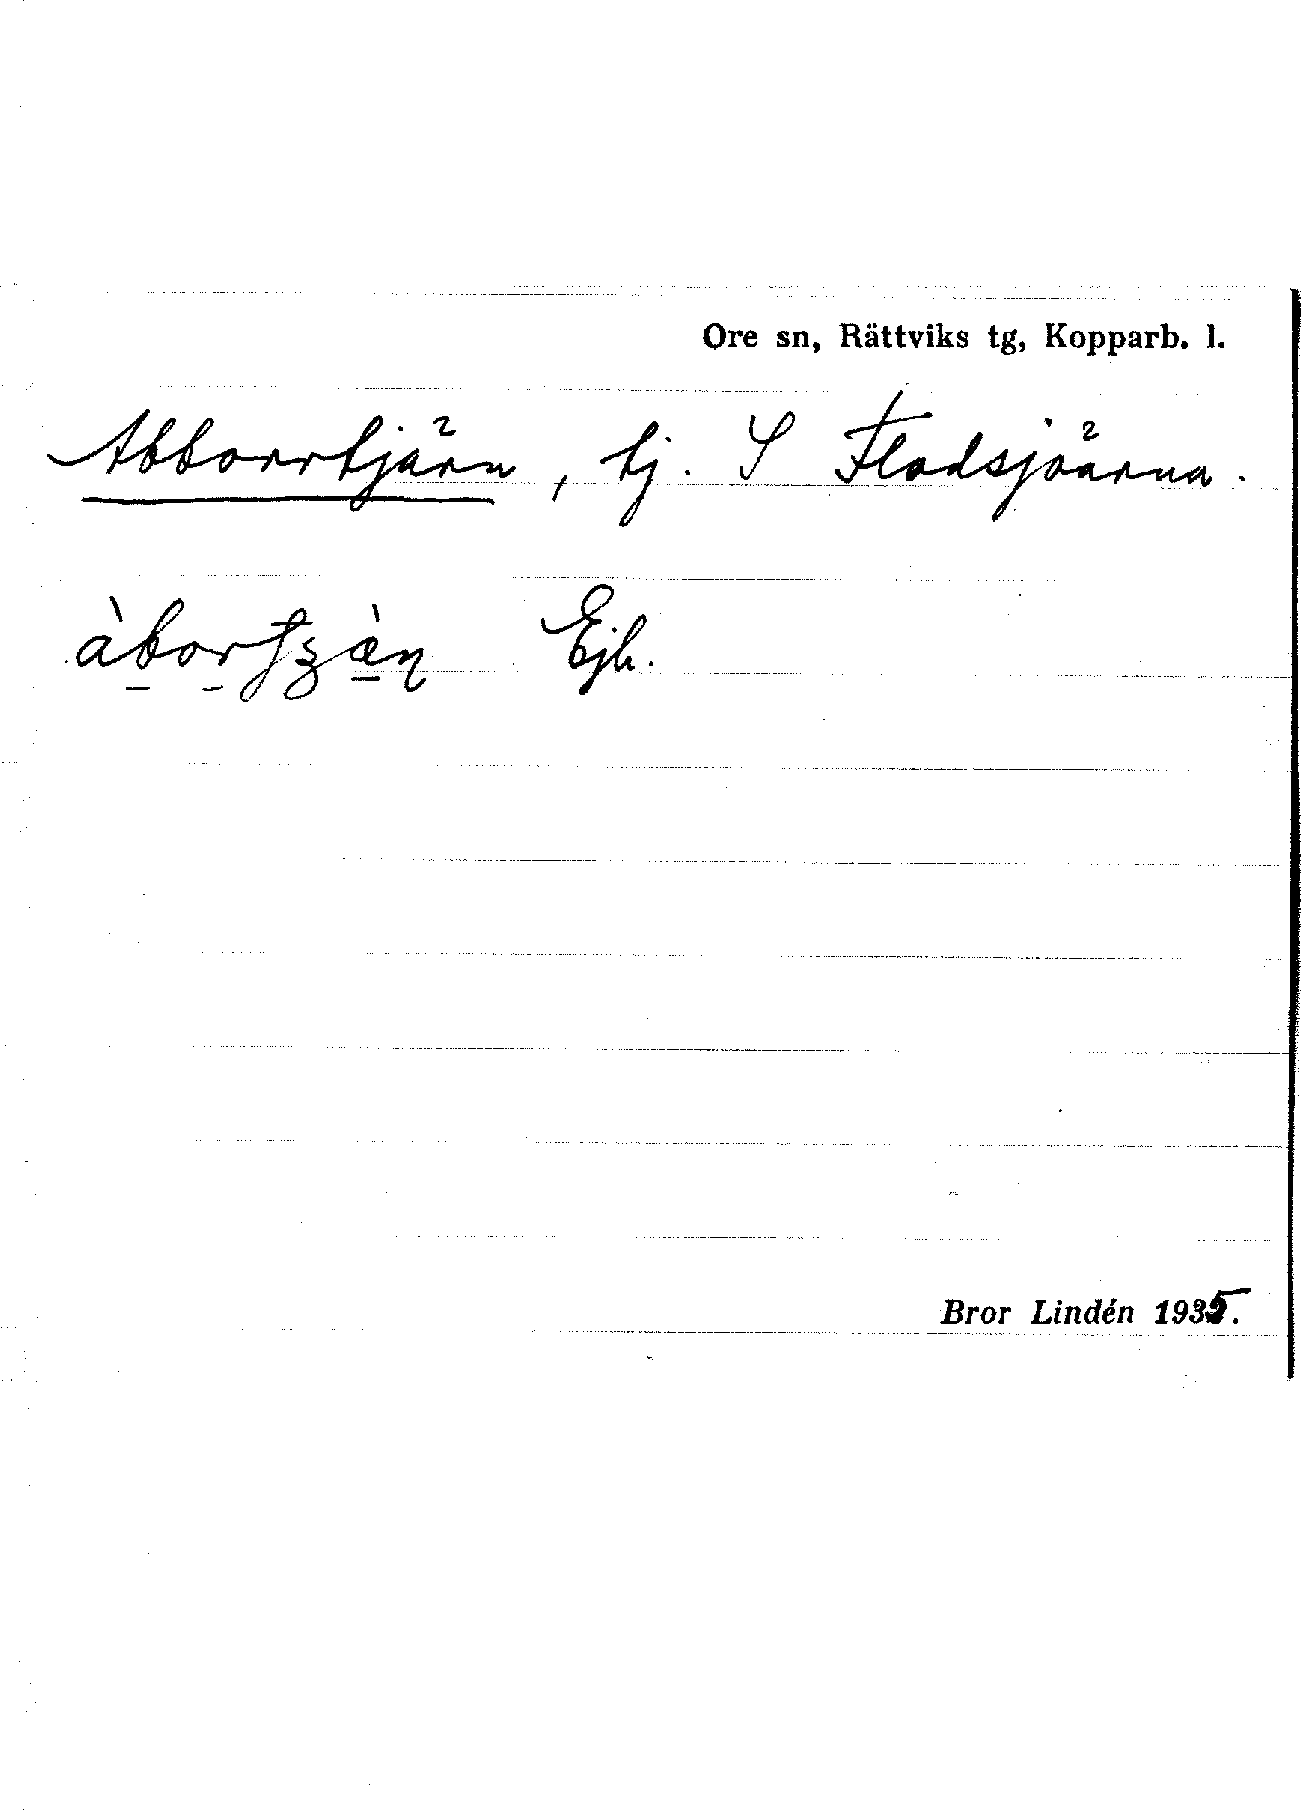 Ore sn, Rättviks tg, Kopparb. l.
Abborrtjärn, tj. S Flodsjöarna.
Ejh.
Bror Lindén 1935.